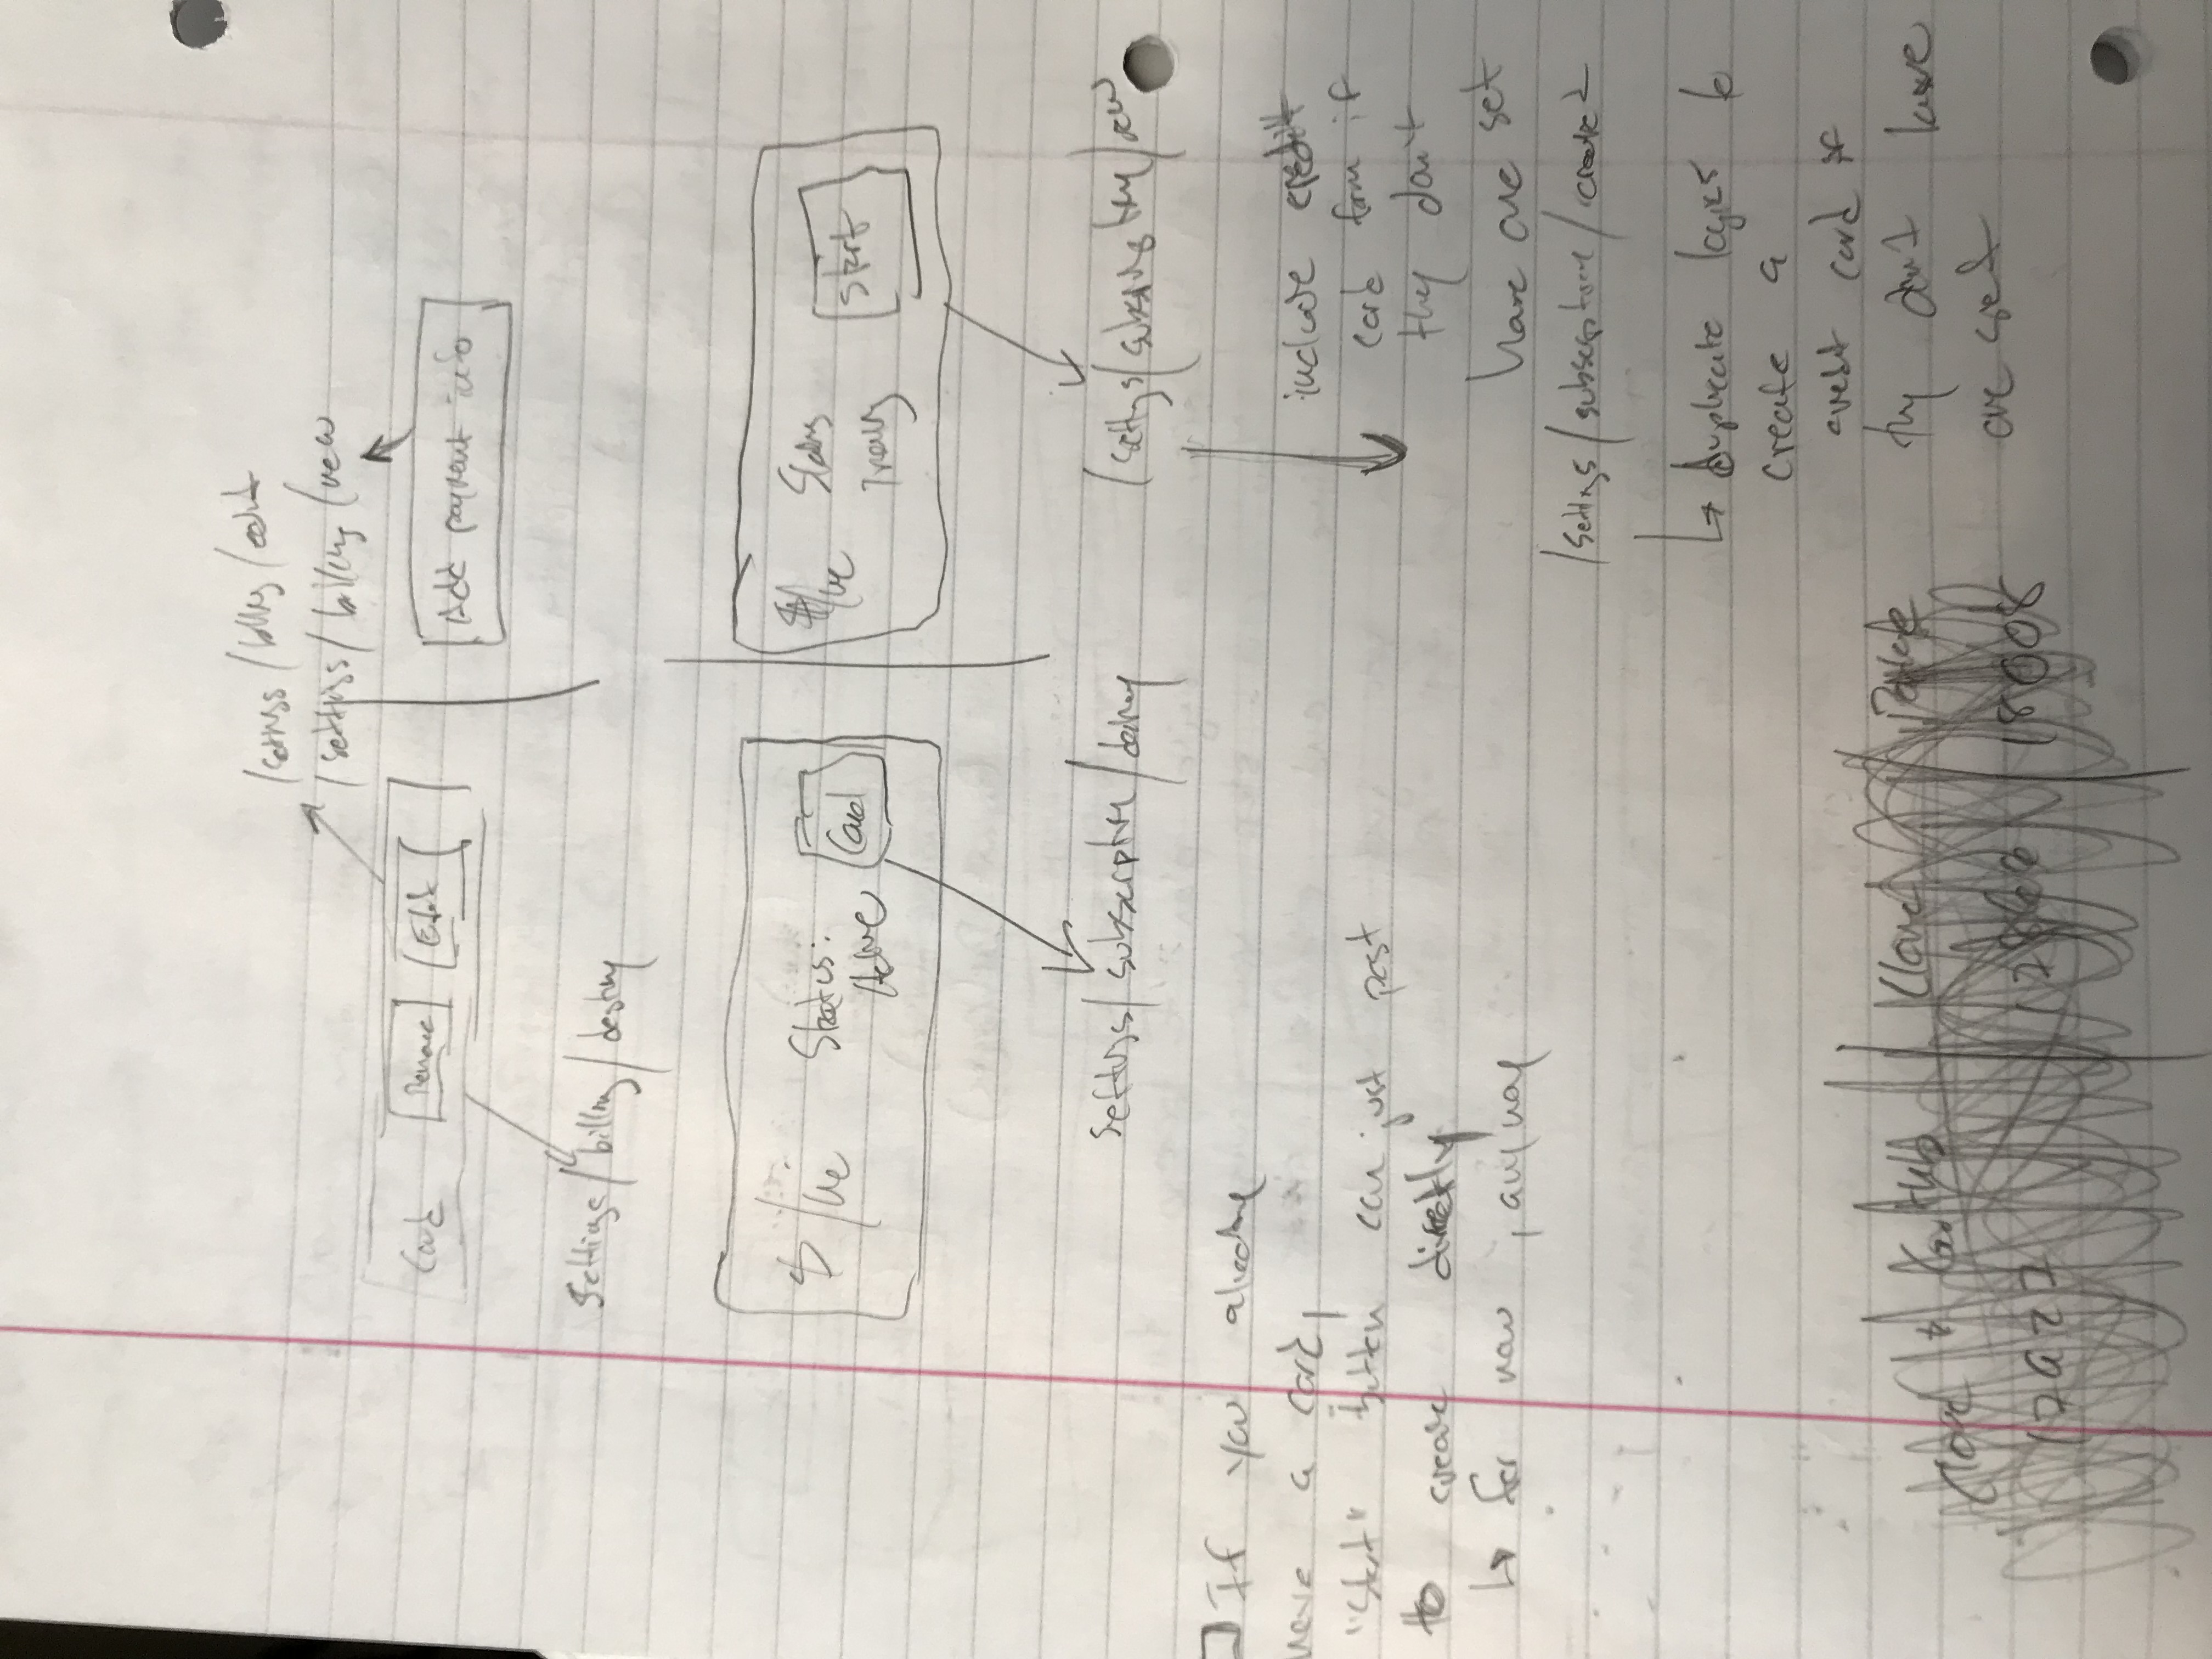 /settings/billing/edit
/settings/billing/new
Card Remove Edit
Add payment info
settings/billing/destroy
$/ Status: Active
$/ Status Start
settings/subscription/destroy
/settings/subscription/new
If you already
have a card,
"start" button can just post
to create directly
↳ for now, anyway
include credit
card form if
they don't
have one set
/settings/subscription/create
↳ duplicate logic to
create a
credit card if
they don't have
one set
18008